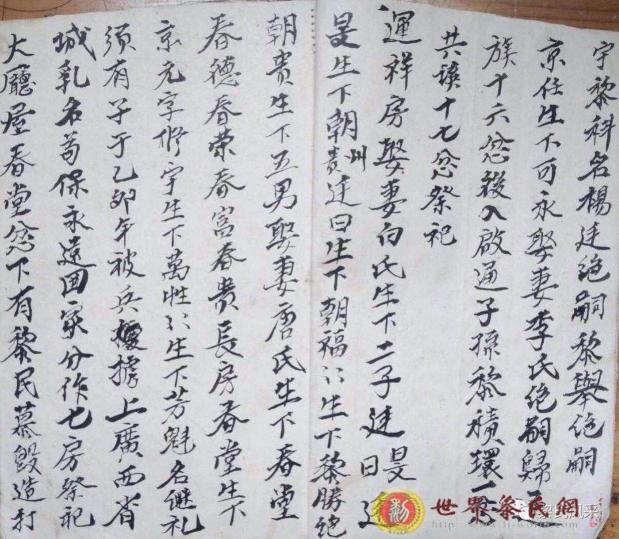 宇黎科名楊廷绝嗣黎舉绝嗣
京任生下可永娶妻李氏绝嗣歸
族十六忿後入啟通子孫黎積環一
共譜十七忿祭祀
運祥房娶妻白氏生下二子廷旻廷日
旻生下朝州朝貴廷曰生下朝福〻生下黎勝绝
朝貴生下五男娶妻唐氏生下春堂
春德春荣春富春贵長房春堂生下
京元字修宇生下萬性〻生下芳魁名继礼
须有子于乙卯年被兵擄上廣西省
城乳名苟保永遠回家分作七房祭祀
大廳屋春堂忿下有黎民慕毀造打
世界黎民網